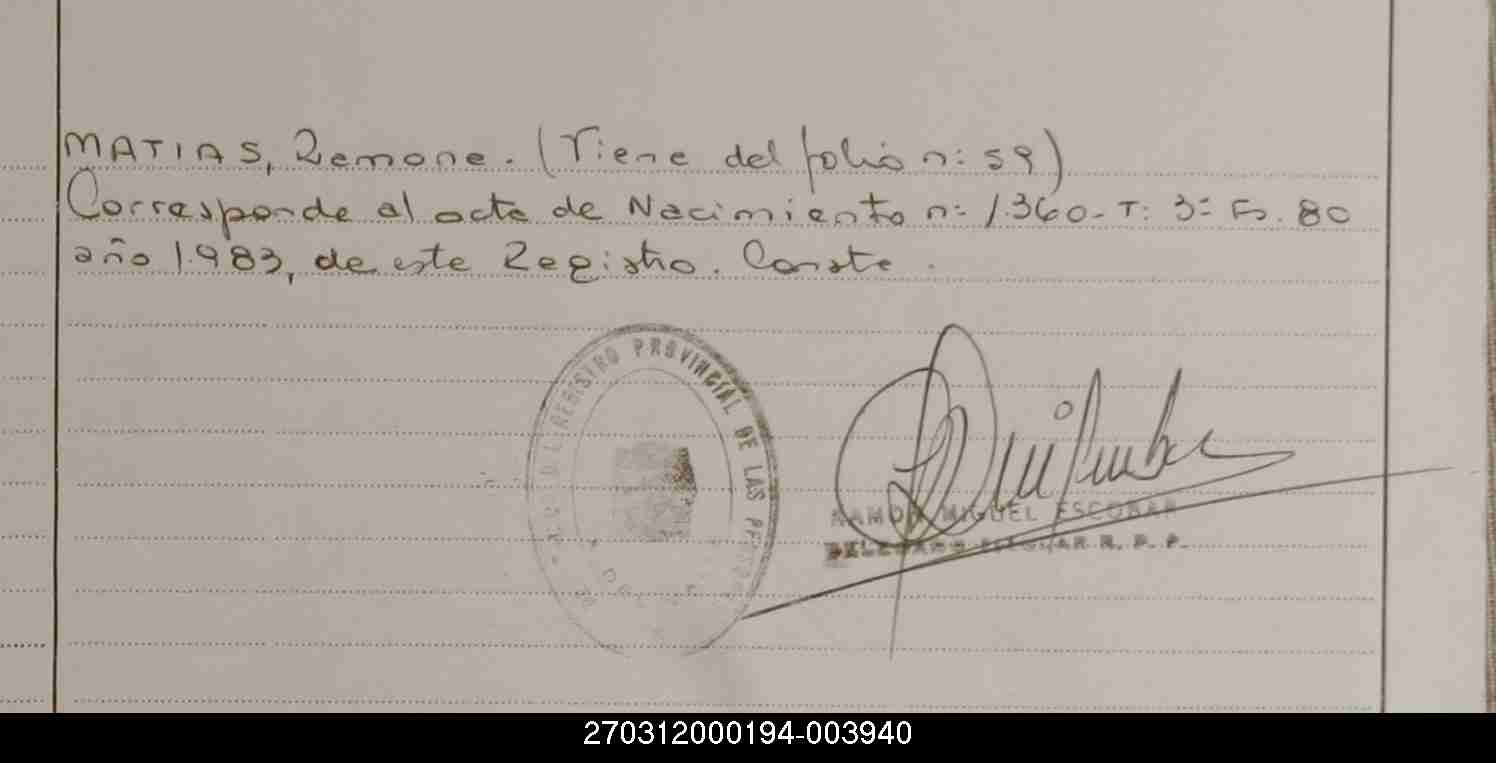 MATIAS, Ramona. (Viene del folio n: 59)
Corresponde al acta de Nacimiento n: 1.360- T: 3: Fo. 80
año 1.983, de este Registro. Conste.
REGISTRO PROVINCIAL DE LAS
RAMON MIGUEL ESCOBAR
R. P. P.
270312000194-003940